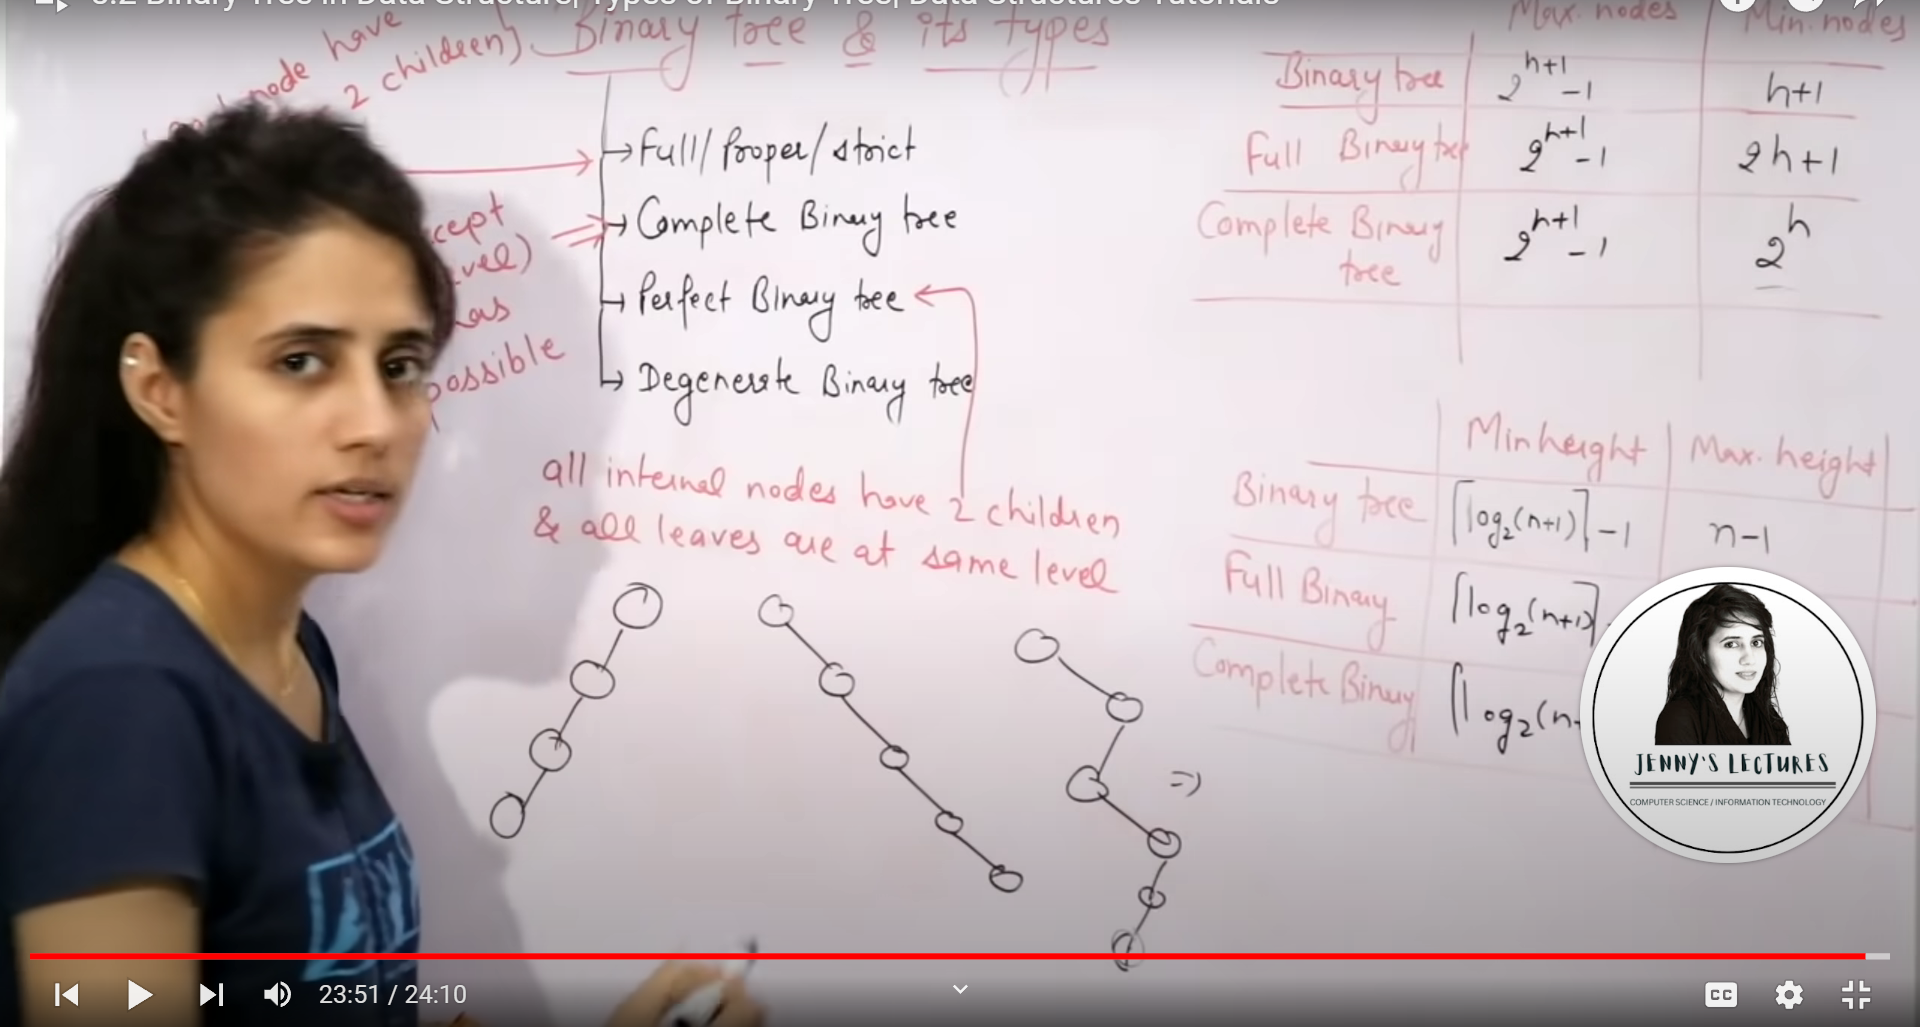 5.2 Binary Tree in Data Structure| Types of Binary Tree| Data Structures Tutorials
node have
2 children)
Binary tree & its types
→ Full/Proper/strict
⇒ → Complete Binary tree
→ Perfect Binary tree ←
→ Degenerate Binary tree
cept
vel)
has
possible
all internal nodes have 2 children
& all leaves are at same level
=>
Max. nodes | Min. nodes
Binary tree | 2^{h+1} - 1 | h+1
Full Binary tree | 2^{h+1} - 1 | 2h+1
Complete Binary | 2^{h+1} - 1 | 2^h
tree
Min height | Max. height
Binary tree | ⌈log₂(n+1)⌉ - 1 | n-1
Full Binary | ⌈log₂(n+1)⌉
Complete Binary | ⌈log₂(n+
JENNY'S LECTURES
COMPUTER SCIENCE / INFORMATION TECHNOLOGY
23:51 / 24:10
CC